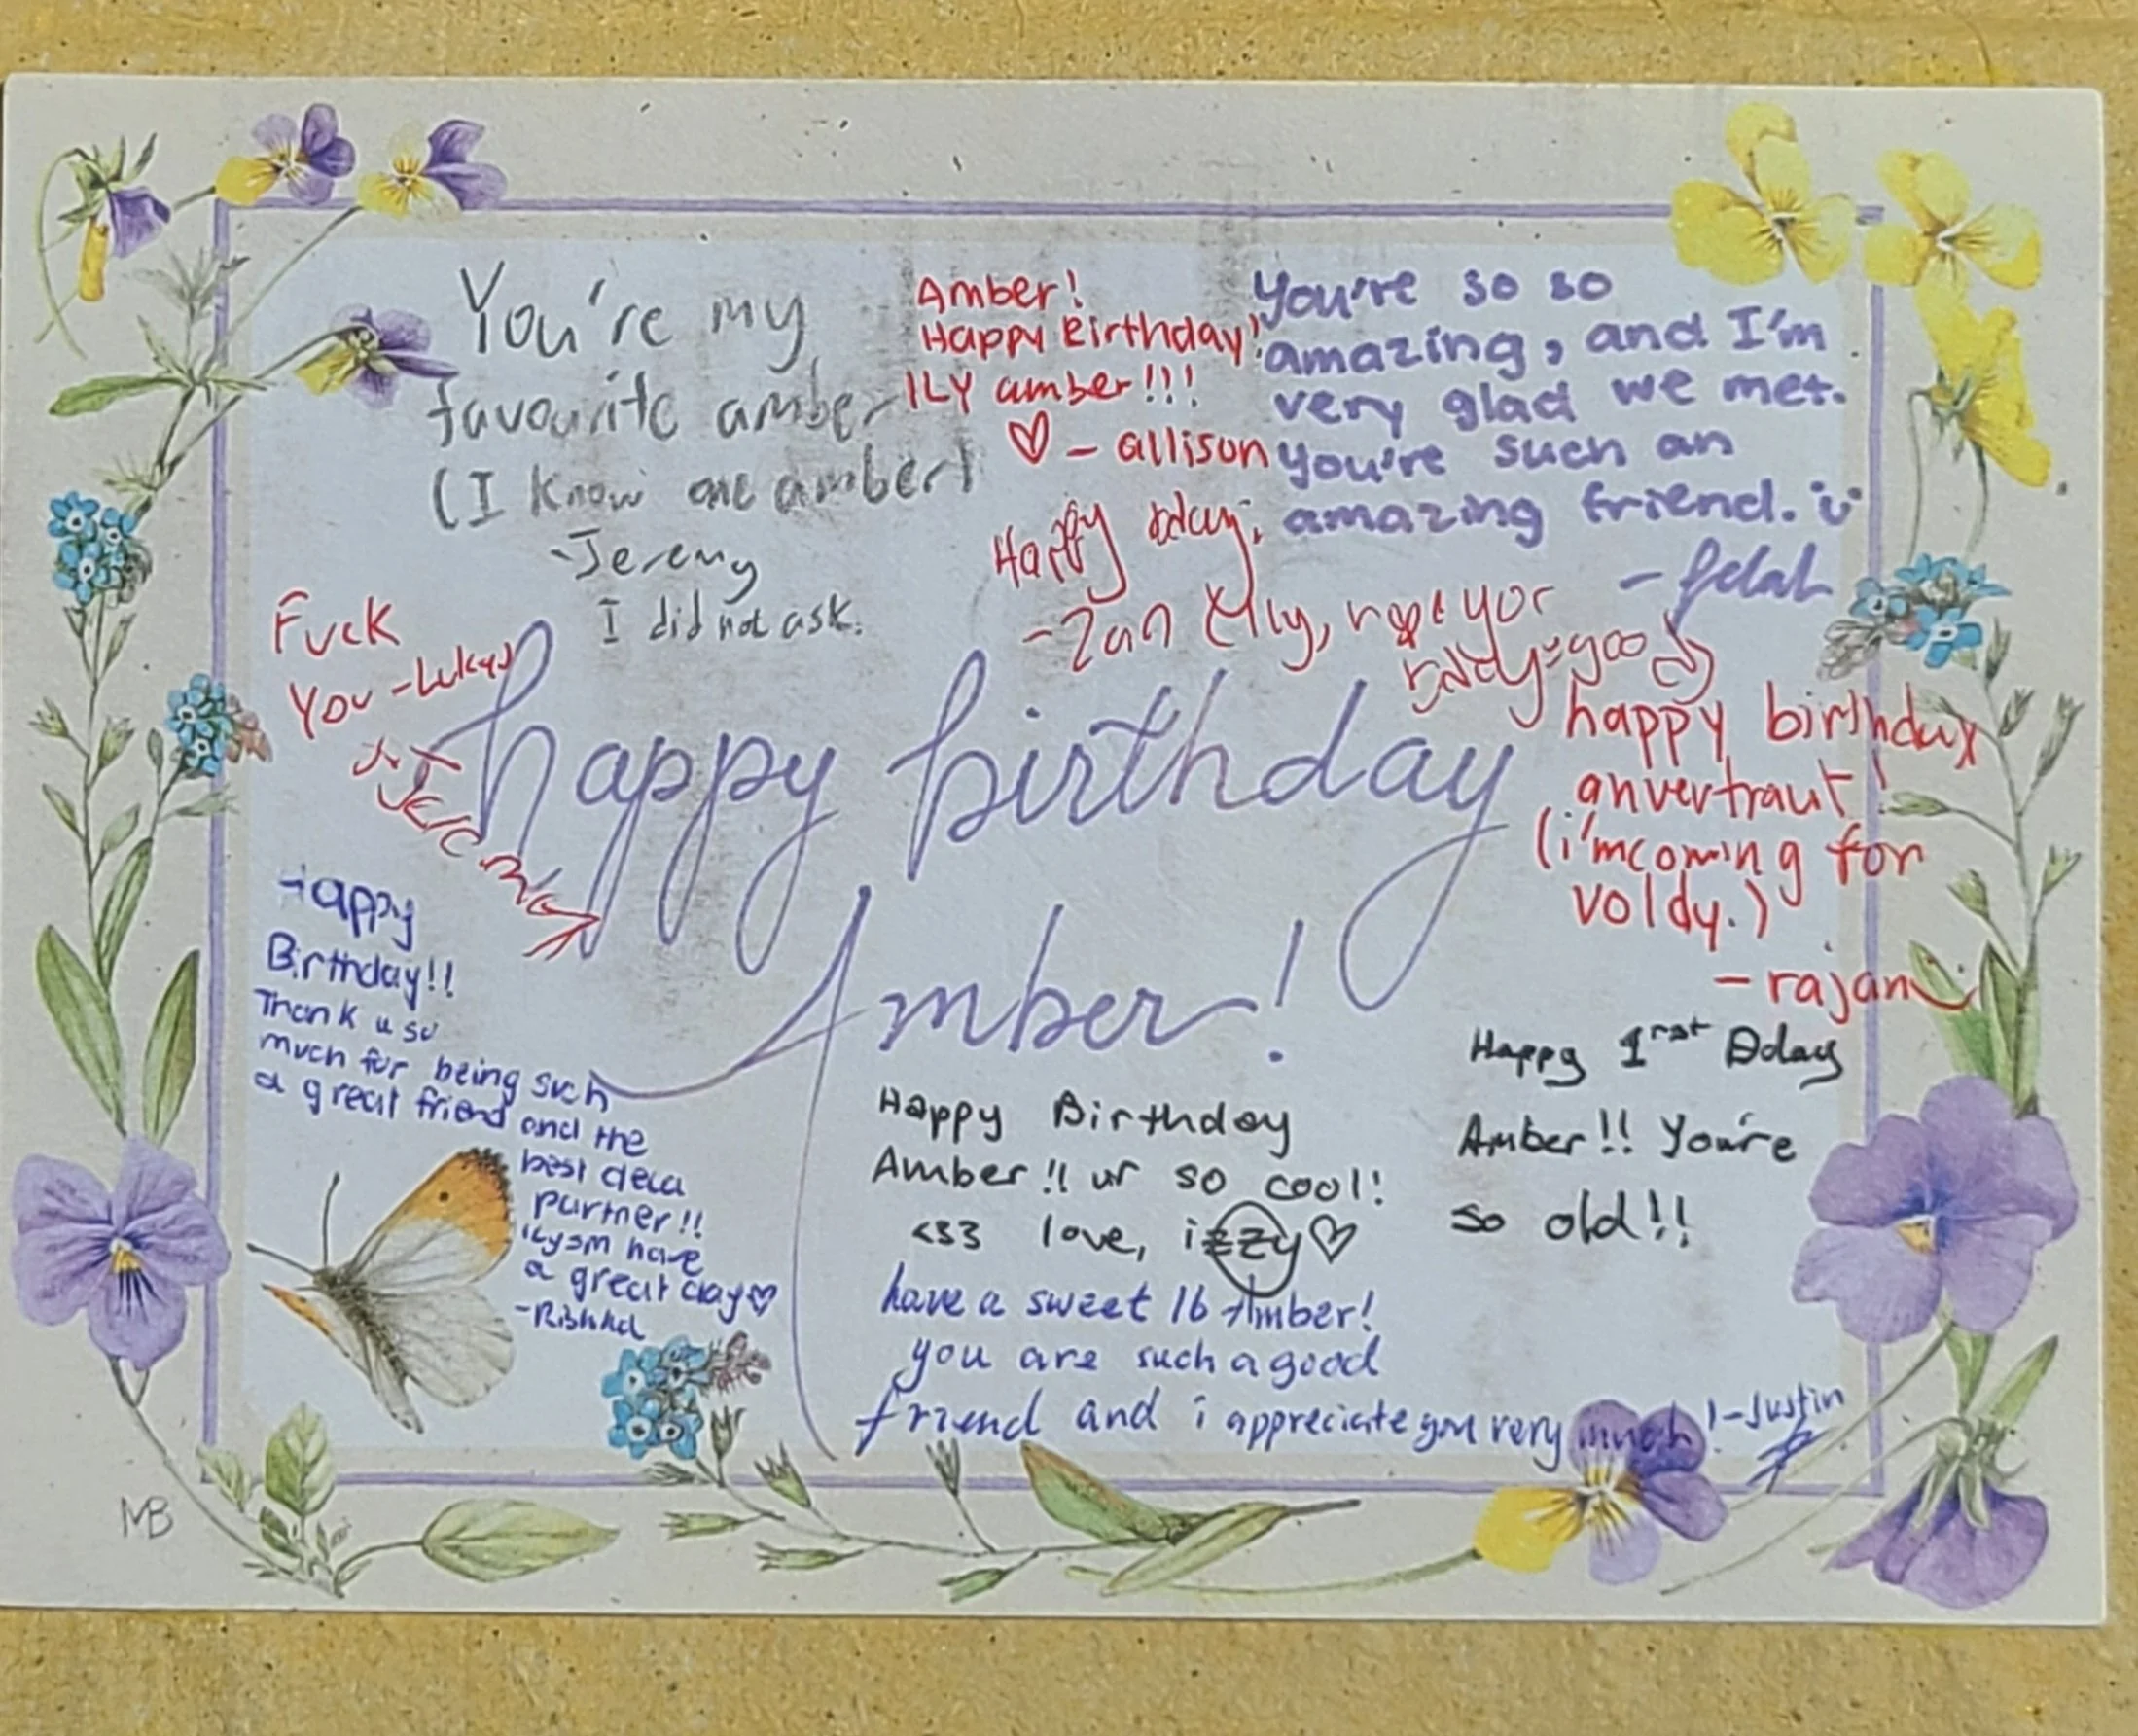 You're my
favourite amber
(I know one amber)
-Jeremy
I did not ask.
Amber!
Happy Birthday!
ILY amber!!!
♡ - allison
You're so so
amazing, and I'm
very glad we met.
You're such an
amazing friend.
Happy bday,
Fuck
You - Lukas
happy birthday
Amber!
happy birthday
anvertraut!
(i'm coming for
voldy.)
- rajan
Happy
Birthday!!
Thank u so
much for being such
a great friend and the
best deca
partner!!
ilysm have
a great day ♡
Happy Birthday
Amber!! ur so cool!
<33 love, izzy ♡
Happy 1rst Bday
Amber!! You're
so old!!
have a sweet 16 Amber!
you are such a good
friend and i appreciate you very much! - Justin
MB